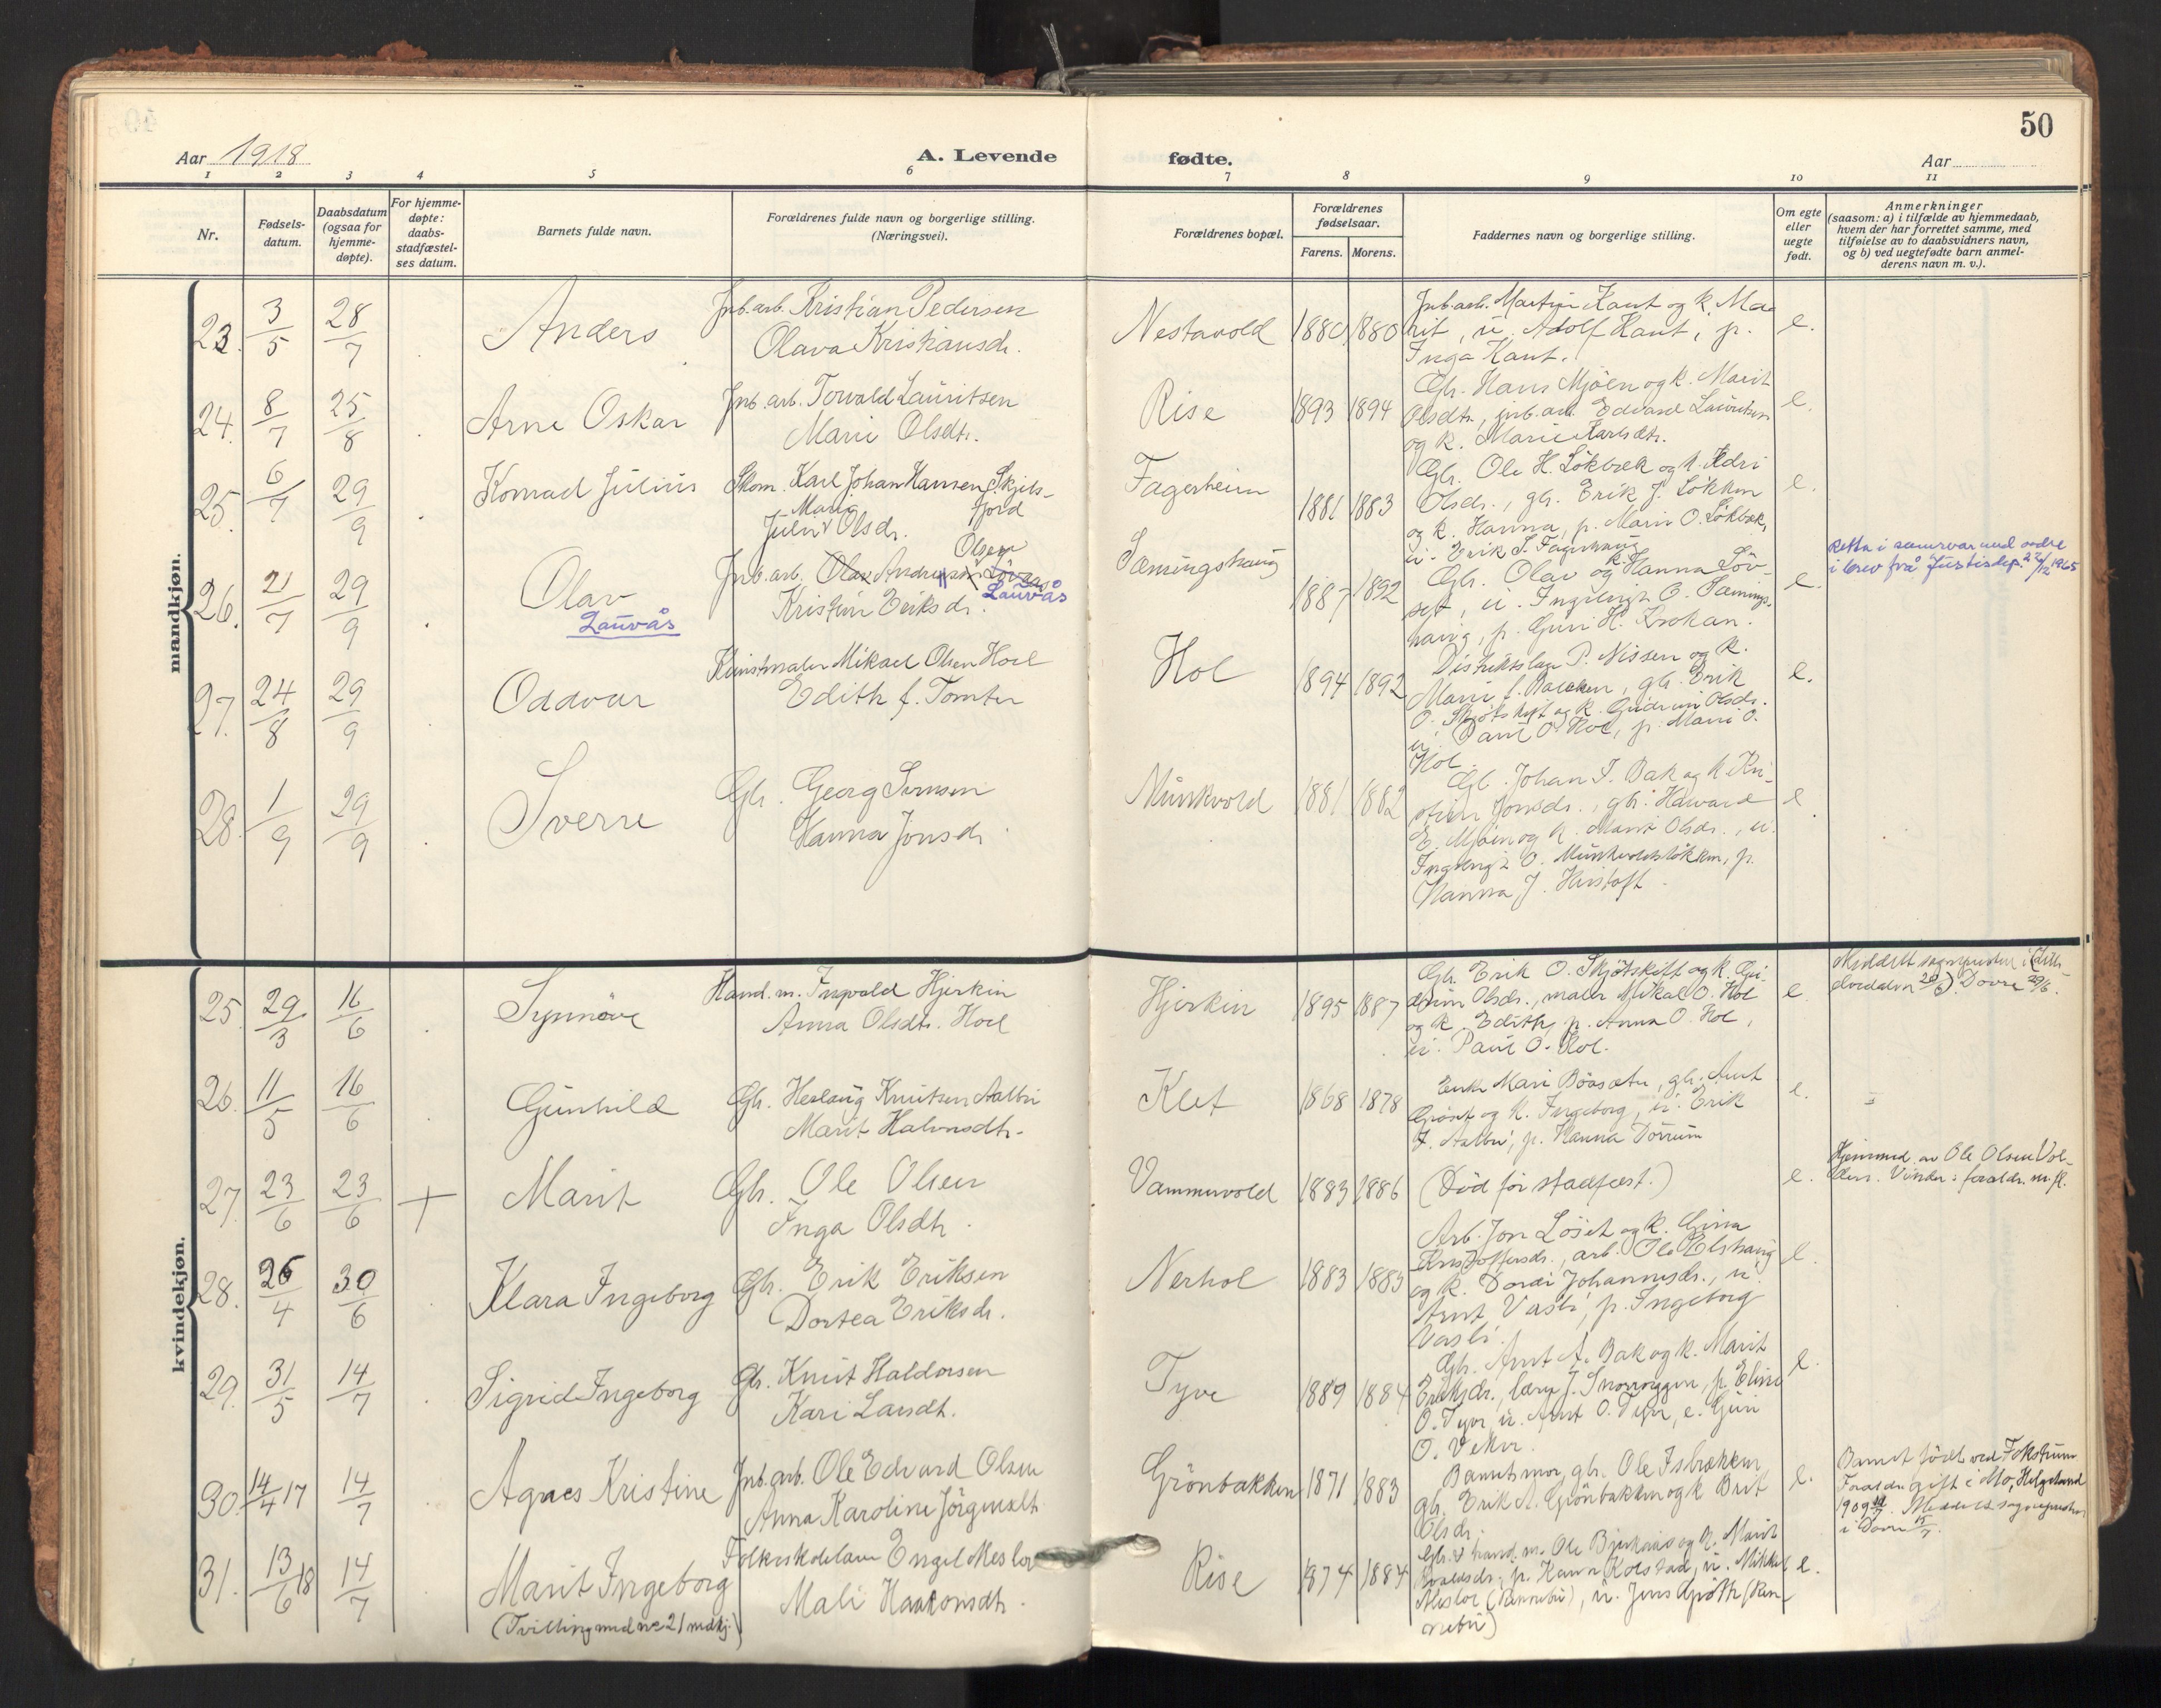 50
Aar 1918
A. Levende
fødte.
Aar
1 2 3 4 5 6 7 8 9 10 11
Nr.
Fødsels-
datum.
Daabsdatum
(ogsaa for
hjemme-
døpte).
For hjemme-
døpte:
daabs-
stadfæstel-
ses datum.
Barnets fulde navn.
Forældrenes fulde navn og borgerlige stilling.
(Næringsvei).
Forældrenes bopæl.
Forældrenes
fødselsaar.
Farens. Morens.
Faddernes navn og borgerlige stilling.
Om egte
eller
uegte
født.
Anmerkninger
(saasom: a) i tilfælde av hjemmedaab,
hvem der har forrettet samme, med
tilføielse av to daabsvidners navn,
og b) ved uegtefødte barn anmel-
derens navn m. v.).
mandkjøn.
23. 3/5 28/7 Anders
Jnb.arb. Kristian Pedersen
Olava Kristiansdr.
Nestavold 1880 1880
Jnb.arb. Martin Kant og k. Ma-
rit, u. Adolf Kant, p.
Inga Kant.
e.
24. 8/7 25/8 Arne Oskar
Jnb.arb. Torvald Lauritsen
Marie Olsdtr.
Rise 1893 1894
Gbr. Hans Mjöen og k. Marit
Olsdtr., jnb.arb. Edvard Lauritsen
og k. Marie Karlsdtr.
e.
25. 6/7 29/9 Konrad Julius
Skom. Karl Johan Hansen Skjels-
fjord
Marie
Julie Olsdr.
Fagerheim 1881 1883
Gbr. Ole H. Lökbæk og k.
Olsdr., gbr. Erik J. Løkken
og k. Hanna, p. Marie O. Lökbæk,
u. Erik S. Fagerhaug
e.
26. 21/7 29/9 Olav
Lauvås
Jnb.arb. Olav Andreas Olsen Lövaas
Lauvås
Kristine Eriksdr.
Sæmingshaug 1887 1892
Gbr. Olav og k. Hanna Löv-
set, u. Ingebrigt O. Sæmings-
haug, p. Guri H. Krokan.
e.
Retta i samsvar med ordre
i brev frå Justisdep. 27/12 1965
27. 24/8 29/9 Oddvar
Kunstmaler Mikael Olsen Hoel
Edith f. Tomter
Hol 1894 1892
Distriktslæge P. Nissen og k.
Marie f. Bakken, gbr. Erik
O. Skjötskift og k. Gudrun Olsdr.
u. Paul O. Hol, p. Marie O.
Hol.
e.
28. 1/9 29/9 Sverre
Gbr. Georg Simsen
Hanna Jonsdr.
Munkvold 1881 1882
Gbr. Johan J. Bak og k. Kri-
stine Jonsdr., gbr. Havard
E. Mjöen og k. Marit Olsdr., u.
Ingebrigt O. Munkvoldslökken, p.
Hanna J. Havstoft.
e.
kvindekjøn.
25. 29/3 16/6 Synnöve
Hand.m. Ingvald Hjerkin
Anna Olsdtr. Hoel
Hjerkin 1895 1887
Gbr. Erik O. Skjötskift og k. Gu-
drun Olsdr., maler Mikal O. Hol
og k. Edith, p. Anna O. Hol,
u. Paul O. Hol.
e.
Meddelt sogneprest i
Dovre 29/6.
26. 11/5 16/6 Gunhild
Gbr. Herlaug Knutsen Aalbu
Marit Halvorsdtr.
Klet 1868 1878
Enke Mari Böasæter, gbr. Arnt
Gröset og k. Ingeborg, u. Erik
J. Aalbu, p. Hanna Dörrum
e.
27. 23/6 23/6 + Marit
Gbr. Ole Olsen
Inga Olsdtr.
Vammervold 1883 1886
(Död för stadfæst.)
e.
Hjemmed. av Ole Olsen Vol-
den. Vidner: forældr. m. fl.
28. 26/4 30/6 Klara Ingeborg
Gbr. Erik Eriksen
Dortea Eriksdr.
Nerhol 1883 1885
Arb. Jon Löset og k. Gina
Kristoffersdr., arb. Ole Elshaug
og k. Dordi Johannesdr., u.
Arnt Vasli, p. Ingeborg
Vasli.
e.
29. 31/5 14/7 Sigrid Ingeborg
Gbr. Knut Haldorsen
Kari Larsdtr.
Tyve 1889 1884
Gbr. Arnt A. Bak og k. Marit
Eriksdr., lærer J. Snoveggen, p. Eline
O. Tyve, u. Arnt O. Tyve, e. Guri
O. Veker.
e.
30. 14/4 17 14/7 Agnes Kristine
Jnb.arb. Ole Edvard Olsen
Anna Karoline Jörgensdtr.
Grönbakken 1871 1883
Barnets mor, gbr. Ole Isbrekken,
gbr. Erik A. Grönbakken og k. Brit
Olsdr.
e.
Barnet födt ved Fokstuen
Forældre gift i Mo, Helgeland
1909. Meddelt sogneprest
i Dovre 15/7.
31. 13/6 18 14/7 Marit Ingeborg
(Tvilling med no 21 mdkj.)
Folkeskolelærer Engel Mesloe
Mali Haakonsdtr.
Rise 1874 1884
Gbr. & hand.m. Ole Bjerkaas og k. Marit
p. Karen Kolstad, u. Mikkel
Mesloe (Rennebu), u. Jens Gjötte (Ren-
nebu)
e.